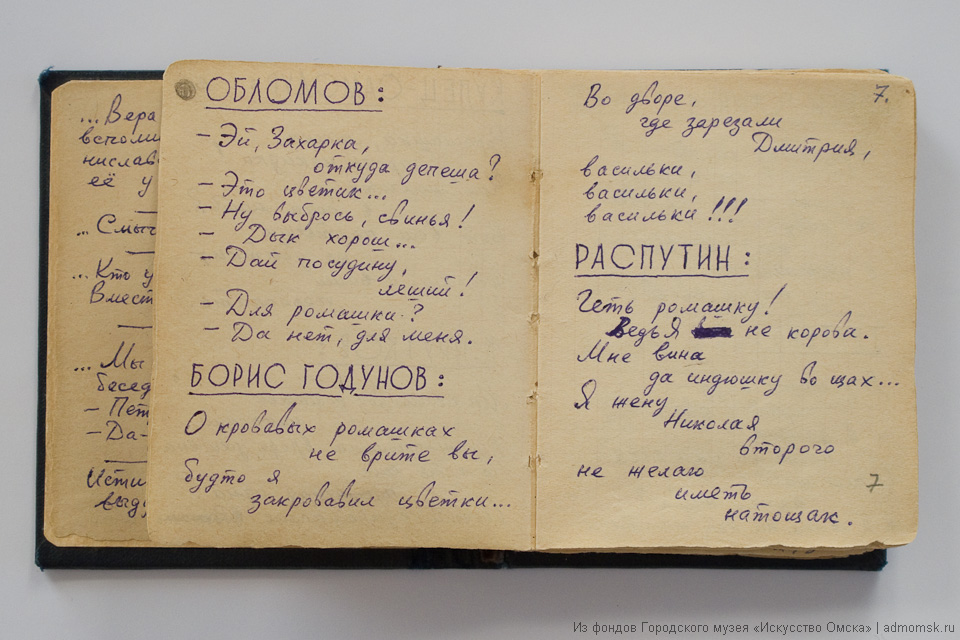 ...Вера
вспоми
нислав
её у
...Смысл
...Кто у
Вмест
...Мы
бесед
- Пет
- Да-
Исти
выду
ОБЛОМОВ:
- Эй, Захарка,
откуда депеша?
- Это цветик...
- Ну выбрось, свинья!
- Дык хорош...
- Дай посудину,
леший!
- Для ромашки?
- Да нет, для меня.
БОРИС ГОДУНОВ:
О кровавых ромашках
не врите вы,
будто я
закровавил цветки...
7.
Во дворе,
где зарезали
Дмитрия,
васильки,
васильки,
васильки!!!
РАСПУТИН:
Геть ромашку!
Ведь я не корова.
Мне вина
да индюшку во щах...
Я жену
Николая
второго
не желаю
иметь
натощак.
7
Из фондов Городского музея «Искусство Омска» | admomsk.ru